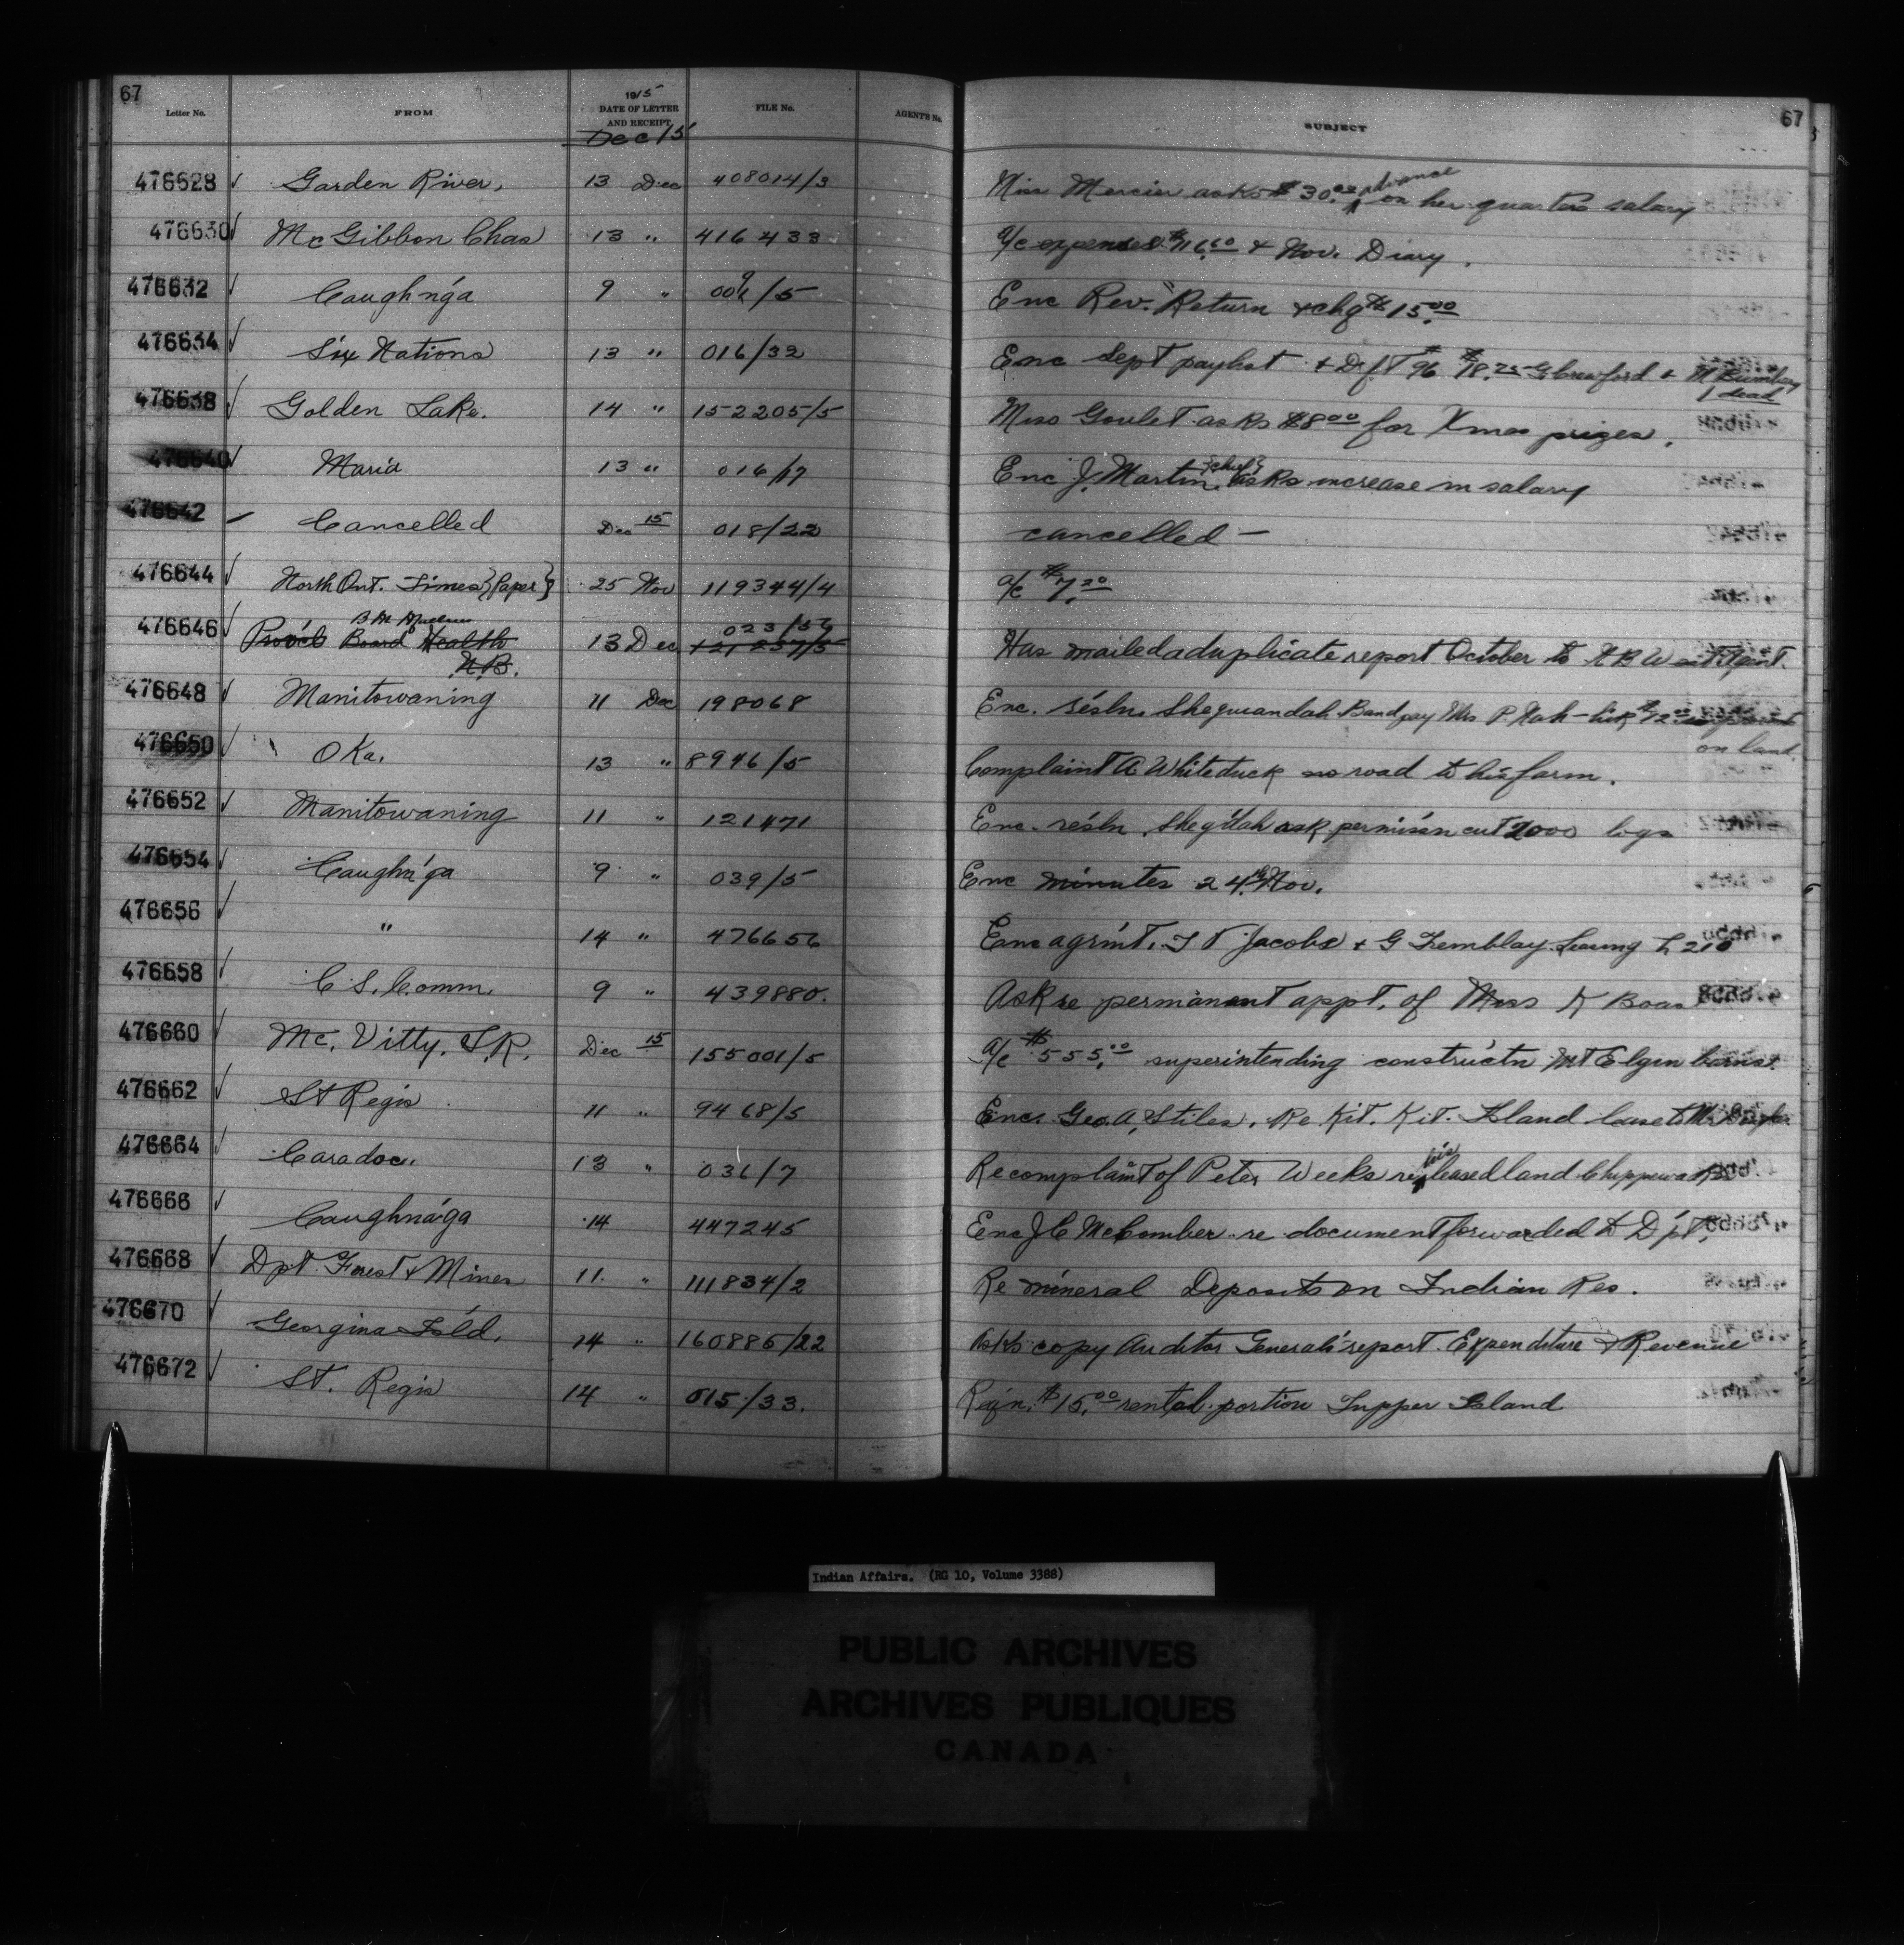 67
Letter No. FROM 1915 DATE OF LETTER AND RECEIPT FILE No. AGENT'S No. SUBJECT 67
Dec 15
476628 Garden River, 13 Dec 408014/3 Miss Mercier asks $30.00 advance on her quarter's salary
476630 Mc Gibbon Chas 13 " 416433 a/c expenses $116.60 & Nov. Diary.
476632 Caughn'ga 9 " /5 Enc Rev. Return & chq $15.00
476634 Six Nations 13 " 016/32 Enc Sept paylist & Dft # 96 $18.75 G Crawford & M
1 dead
476638 Golden Lake. 14 " 152205/5 Miss Goulet asks $8.00 for Xmas prizes.
476640 Maria 13 " 016/17 Enc J. Martin {chief} asks increase in salary
476642 – Cancelled Dec 15 018/22 cancelled –
476644 North Ont. Times {Paper} 25 Nov 119344/4 a/c $7.20
476646 Prov'cl Board Health N.B. 13 Dec 023/56 Has mailed a duplicate report October to Agent.
476648 Manitowaning 11 Dec 198068 Enc. résln. Sheguiandah Band pay Mrs P.
on land
476650 Oka. 13 " 8946/5 Complaint A Whiteduck no road to his farm.
476652 Manitowaning 11 " 121471 Enc. résln. Sheg'dah ask permis'n cut 2000 logs
476654 Caughn'ga 9 " 039/5 Enc minutes 24th Nov.
476656 " 14 " 476656 Enc agrm't. Jacobs & G Tremblay. Leasing L 210
476658 C. S. Comm. 9 " 439880. Ask re permanant appt. of Miss K Boas
476660 Mc. Vitty. S.R. Dec 15 155001/5 a/c $555.00 superintending construct'n Mt Elgin barns.
476662 St Regis 11 " 9468/5 Enc. Geo. A. Stiles. Re Kit. Kit. Island lease to Mr
476664 Caradoc. 13 " 031/7 Re complaint of Peter Weeks re his leased land Chippewa Res.
476666 Caughna'ga 14 447245 Enc J C McComber re document forwarded to D'pt.
476668 Dpt. Forest & Mines 11. " 111834/2 Re mineral Deposits on Indian Res.
476670 Georgina Isl'd. 14 " 160886/22 Asks copy Auditor General's report. Expenditure & Revenue
476672 St. Regis 14 " 015/33. $15.00 rental portion Tupper Island
Indian Affairs. (RG 10, Volume 3388)
PUBLIC ARCHIVES
ARCHIVES PUBLIQUES
CANADA